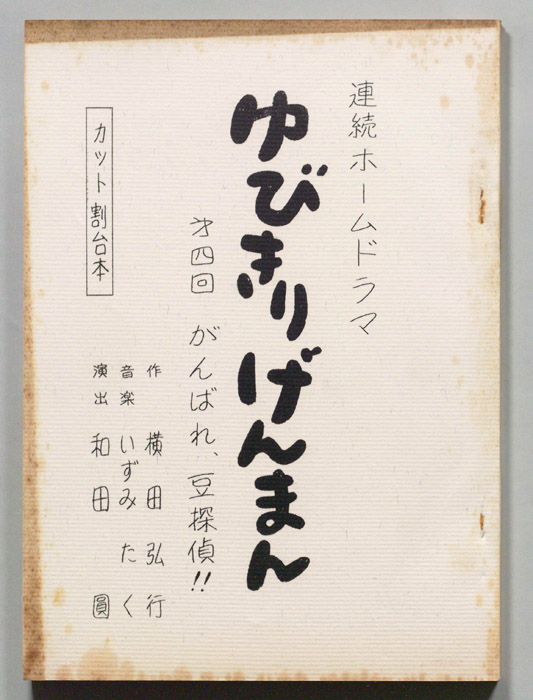 連続ホームドラマ
ゆびきりげんまん
才四回 がんばれ、豆探偵!!
作 横田弘行
音楽 いずみたく
演出 和田 圓
カット割台本